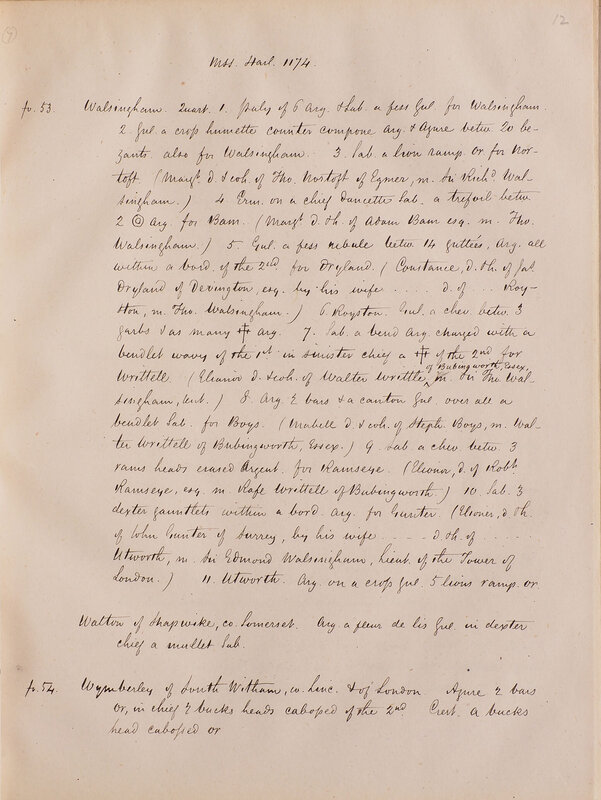 (9)
12
Mss. Harl. 1174.
fo. 53. Walsingham. Quart. 1. Paly of 6 Arg. & Sab. a fess Gul. for Walsingham.
2. Gul. a cross humette counter compone Arg. & Azure betw. 20 be-
zants also for Walsingham. 3. Sab. a lion ramp. or. for Nor-
toft. (Margt. d. & coh. of Tho. Nortoft of Egmer, m. Sir Richd Wal-
singham.) 4. Erm. on a chief dancette Sab. a trefoil betw.
2 Arg. for Bam. (Margt. d. & h. of Adam Bam esq. m. Tho.
Walsingham.) 5. Gul. a fess nebule betw. 14 guttées, Arg. all
within a bord. of the 2nd for Dryland. (Constance, d. & h. of Jas.
Dryland of Devington, esq. by his wife . . . . d. of . . Roy-
ston, m. Tho. Walsingham.) 6. Royston. Gul. a chev. betw. 3
garbs & as many ╬ Arg. 7. Sab. a bend Arg. charged with a
bendlet wavy of the 1st. in sinister chief a ╬ of the 2nd for
Writtell. (Eleanor d. & coh. of Walter Writtle, of Bubingworth, Essex, m. Sir Tho. Wal-
singham, knt.) 8. Arg. 2 bars & a canton Gul. over all a
bendlet Sab. for Boys. (Mabell d. & coh. of Steph. Boys, m. Wal-
ter Writtell of Bubingworth, Essex.) 9. Sab. a chev. betw. 3
rams heads erased Argent. for Ramseye. (Elionor, d. of Robt.
Ramseye, esq. m. Rafe Writtell of Bubingworth.) 10. Sab. 3
dexter gauntlets within a bord. Arg. for Gunter. (Elioner, d. & h.
of John Gunter of Surrey, by his wife . . . . d. & h. of . . . . .
Utworth, m. Sir Edmond Walsingham, lieut. of the Tower of
London.) 11. Utworth. Arg. on a cross Gul. 5 lions ramp. or.
Walton of Shapwike, co. Somerset. Arg. a fleur de lis Gul. in dexter
chief a mullet Sab.
fo. 54. Wymberley of South Witham, co. Linc. & of London. Azure 2 bars
or, in chief 2 bucks heads cabossed of the 2nd. Crest. a bucks
head cabossed or